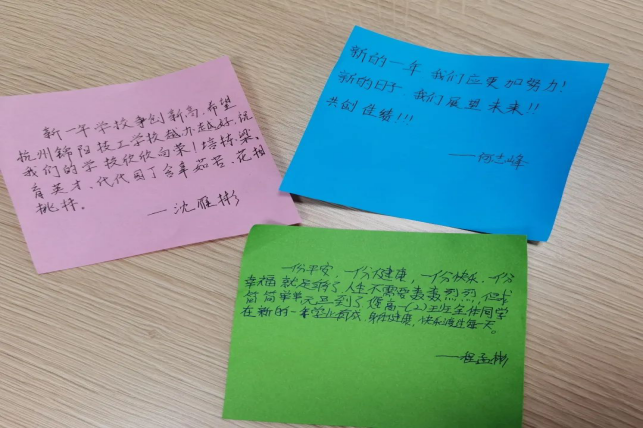 新一年学校争创新高,希望
杭州锦阳技工学校越办越好,让
我们的学校欣欣向荣!培栋梁、
育英才、代代园丁含辛茹苦、花相
桃林。
——沈雁彬
新的一年 我们应更加努力!
新的日子 我们展望未来!!
共创佳绩!!!
——志峰
一份平安,一份健康,一份快乐,一份
幸福 就足够了 人生不需要轰轰烈烈,但求
简简单单 高一(2)班全体同学
在新的一年学业有成,身体健康,快乐度过每一天。
——程 彬